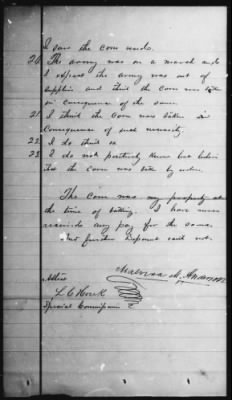 I saw the corn made.
20. The army was on a march and
I expect the army was out of
supplies and think the corn was taken
in consequence of the same.
21. I think the corn was taken in
consequence of such necessity
22. I do think so
23. I do not positively know but believe
that the corn was taken by order.
The corn was my property at
the time of taking. I have never
received any pay for the same.
And further deponent saith not.
Malvina M.
Attest
L C Houk
Special Commissioner